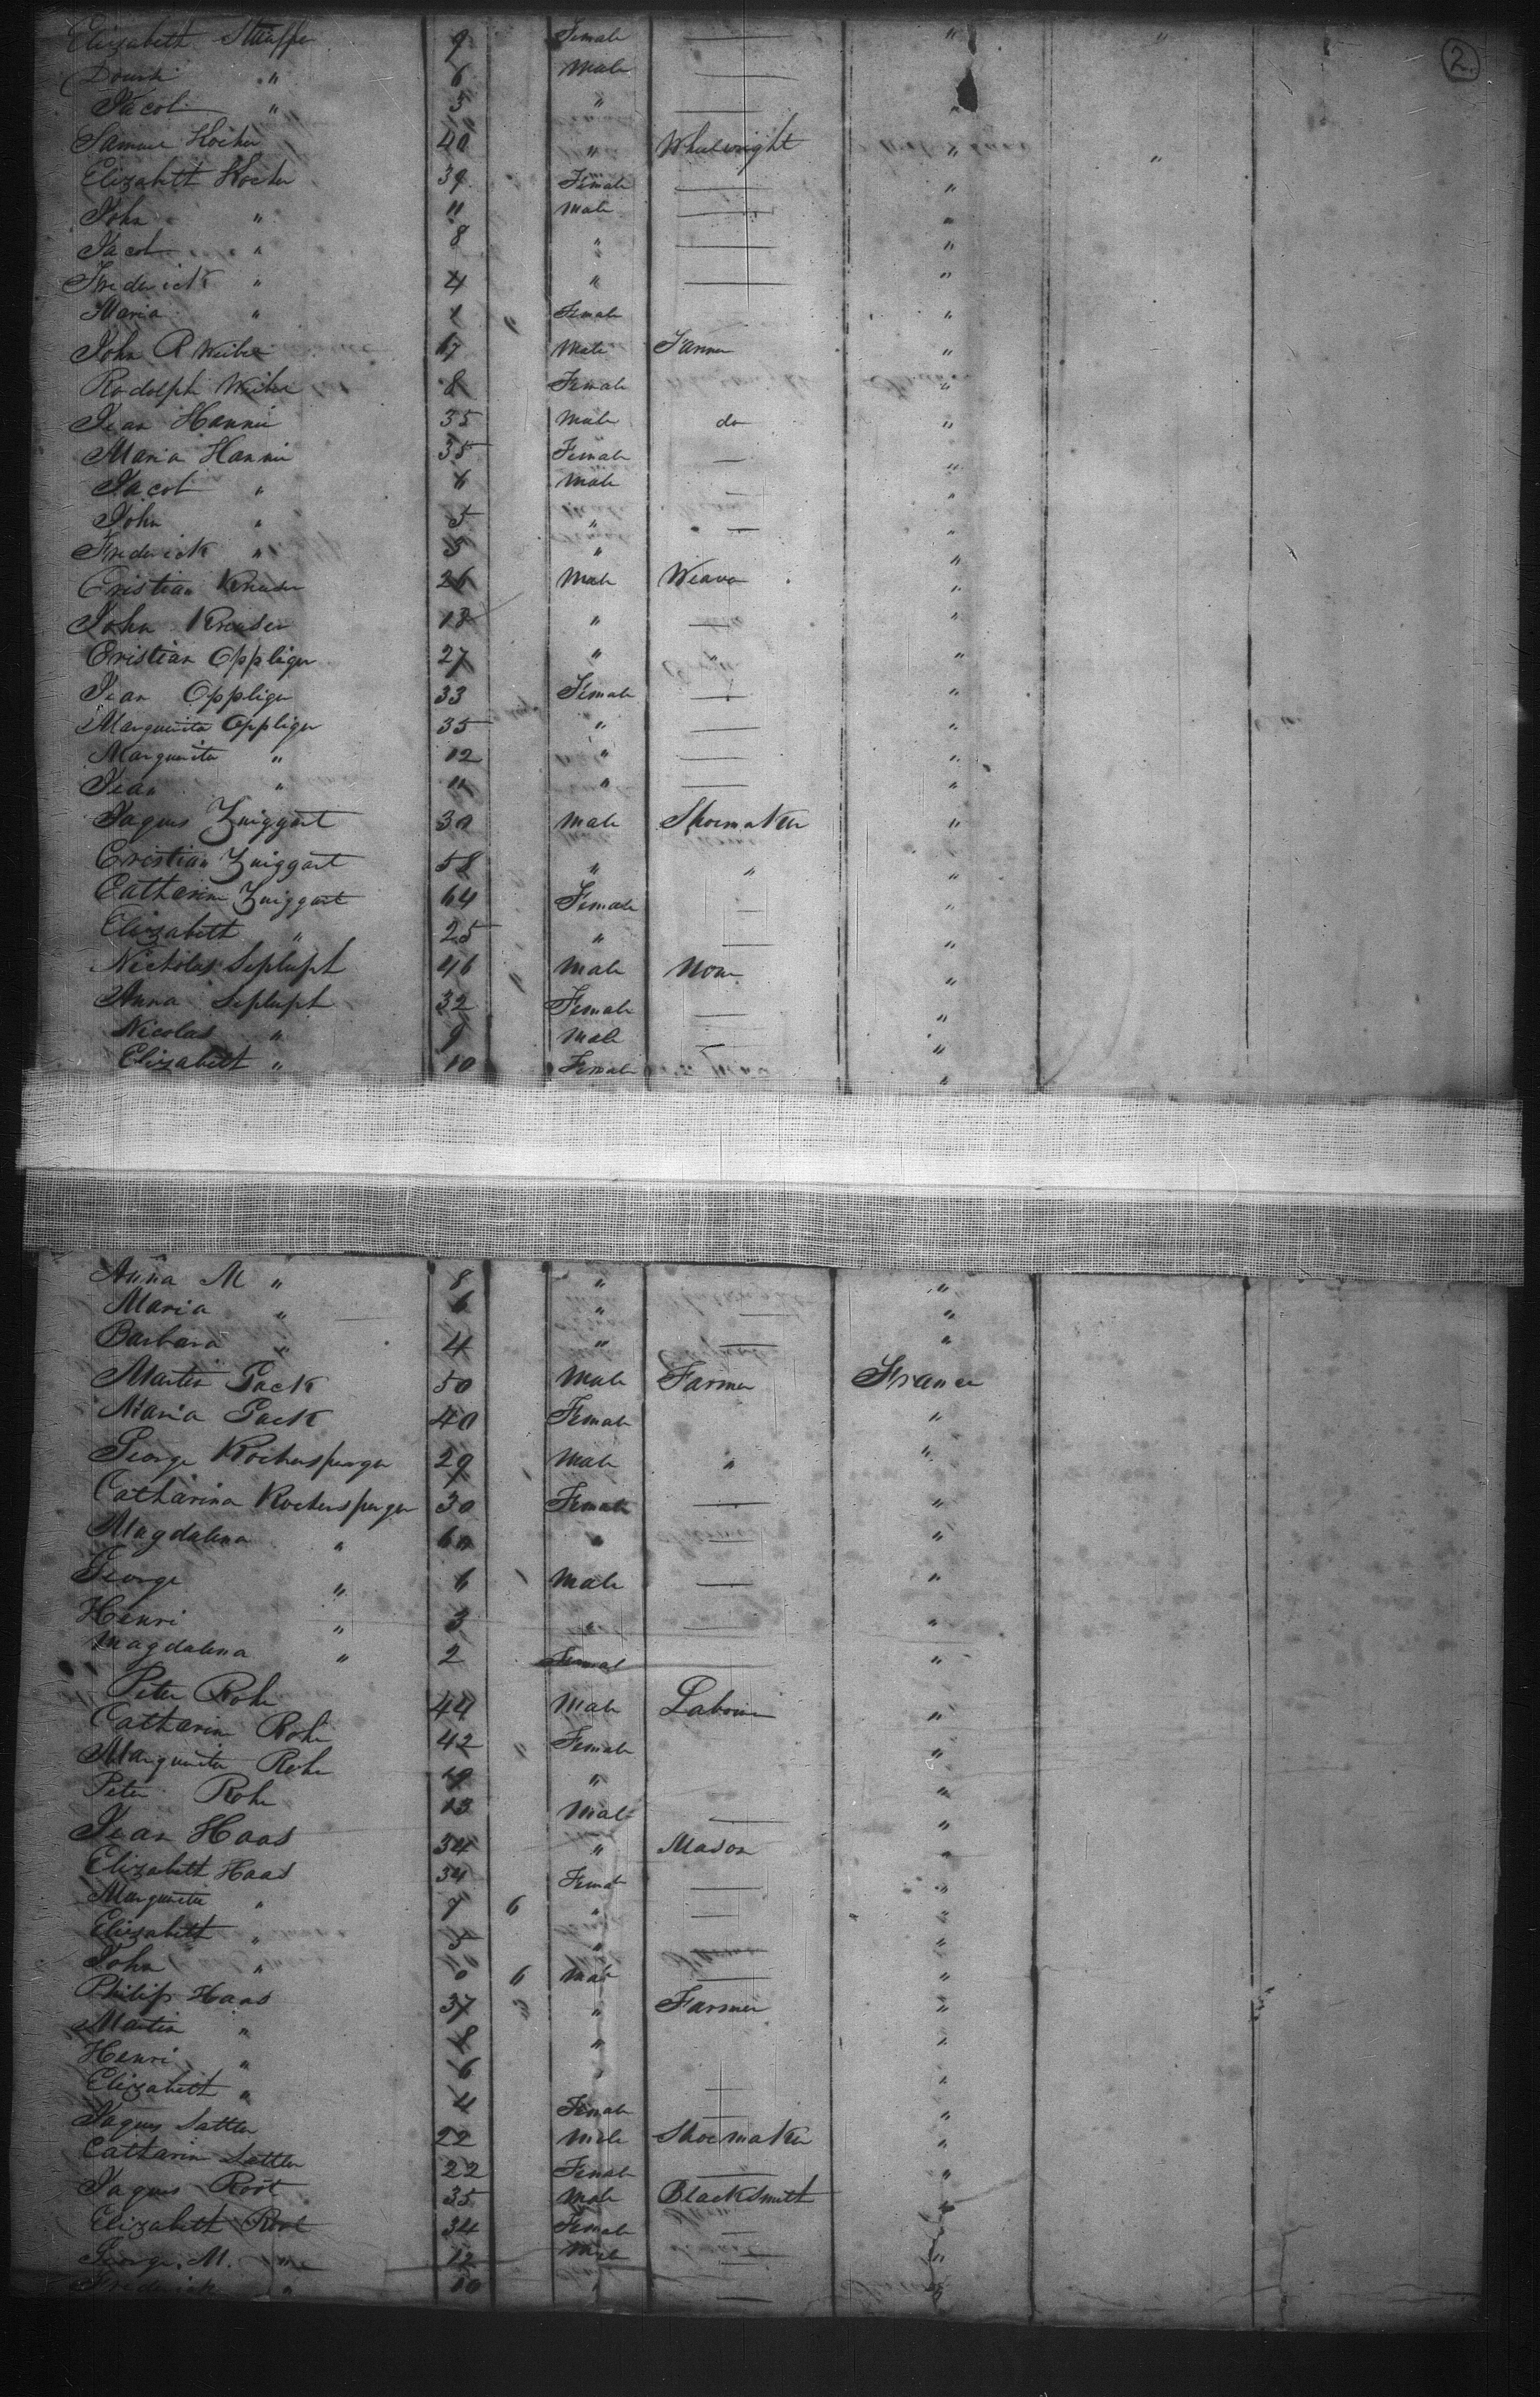 2.
Elizabeth Stauffer 9 Female — " "
" 6 Male —
Jacob " 5 " — "
Samuel Kocher 40 " Wheelwright " "
Elizabeth Kocher 39 Female — "
John " 11 Male — "
Jacob " 8 " — "
Frederick " 4 " — "
Maria " 1 Female "
John R Weibel 67 Male Farmer "
Rodolph Weibel 8 Female "
Jean Hanni 35 Male do "
Maria Hanni 35 Female — "
Jacob " 6 Male — "
John " 5 " — "
Frederick " 3 " "
Cristian 26 Male Weaver "
John 18 " — "
Cristian Oppliger 27 " " "
Jean Oppliger 33 Female — "
Marguerita Oppliger 35 " — "
Marguerita " 12 " — "
Jean " 11 " — "
Jaques Zuiggart 30 Male Shoemaker "
Cristian Zuiggart 58 " " "
Catharine Zuiggart 64 Female — "
Elizabeth " 25 " — "
Nickolas Sepluph 46 Male None "
Anna Sepluph 32 Female — "
Nicolas " 9 Male — "
Elizabeth " 10 Female "
Anna M " 8 " "
Maria " 6 " — "
Barbara " 4 " — "
Martin Gack 50 Male Farmer France
Maria Gack 40 Female "
George Kochersperger 29 Male " "
Catharina Kochersperger 30 Female — "
Magdalena " 60 " — "
George " 6 Male — "
Henri " 3 " — "
Magdalena " 2 Femal "
Peter Rohr 44 Male Laborer "
Catharine Rohr 42 Female "
Marguerita Rohr 19 " "
Peter Rohr 13 Male — "
Jean Haas 34 " Mason "
Elizabeth Haas 34 Femal — "
Marguerita " 7 6 " — "
Elizabeth " 5 " — "
John " 0 6 Male — "
Philip Haas 37 " Farmer "
Martin " 8 " "
Henri " 6 " — "
Elizabeth " 4 Female — "
Jaques Sattler 22 Male Shoemaker "
Catharine Sattler 22 Female — "
Jaques Root 35 Male Blacksmith "
Elizabeth Root 34 Female — "
George M. " 12 Male — "
Frederick " 10 " — "